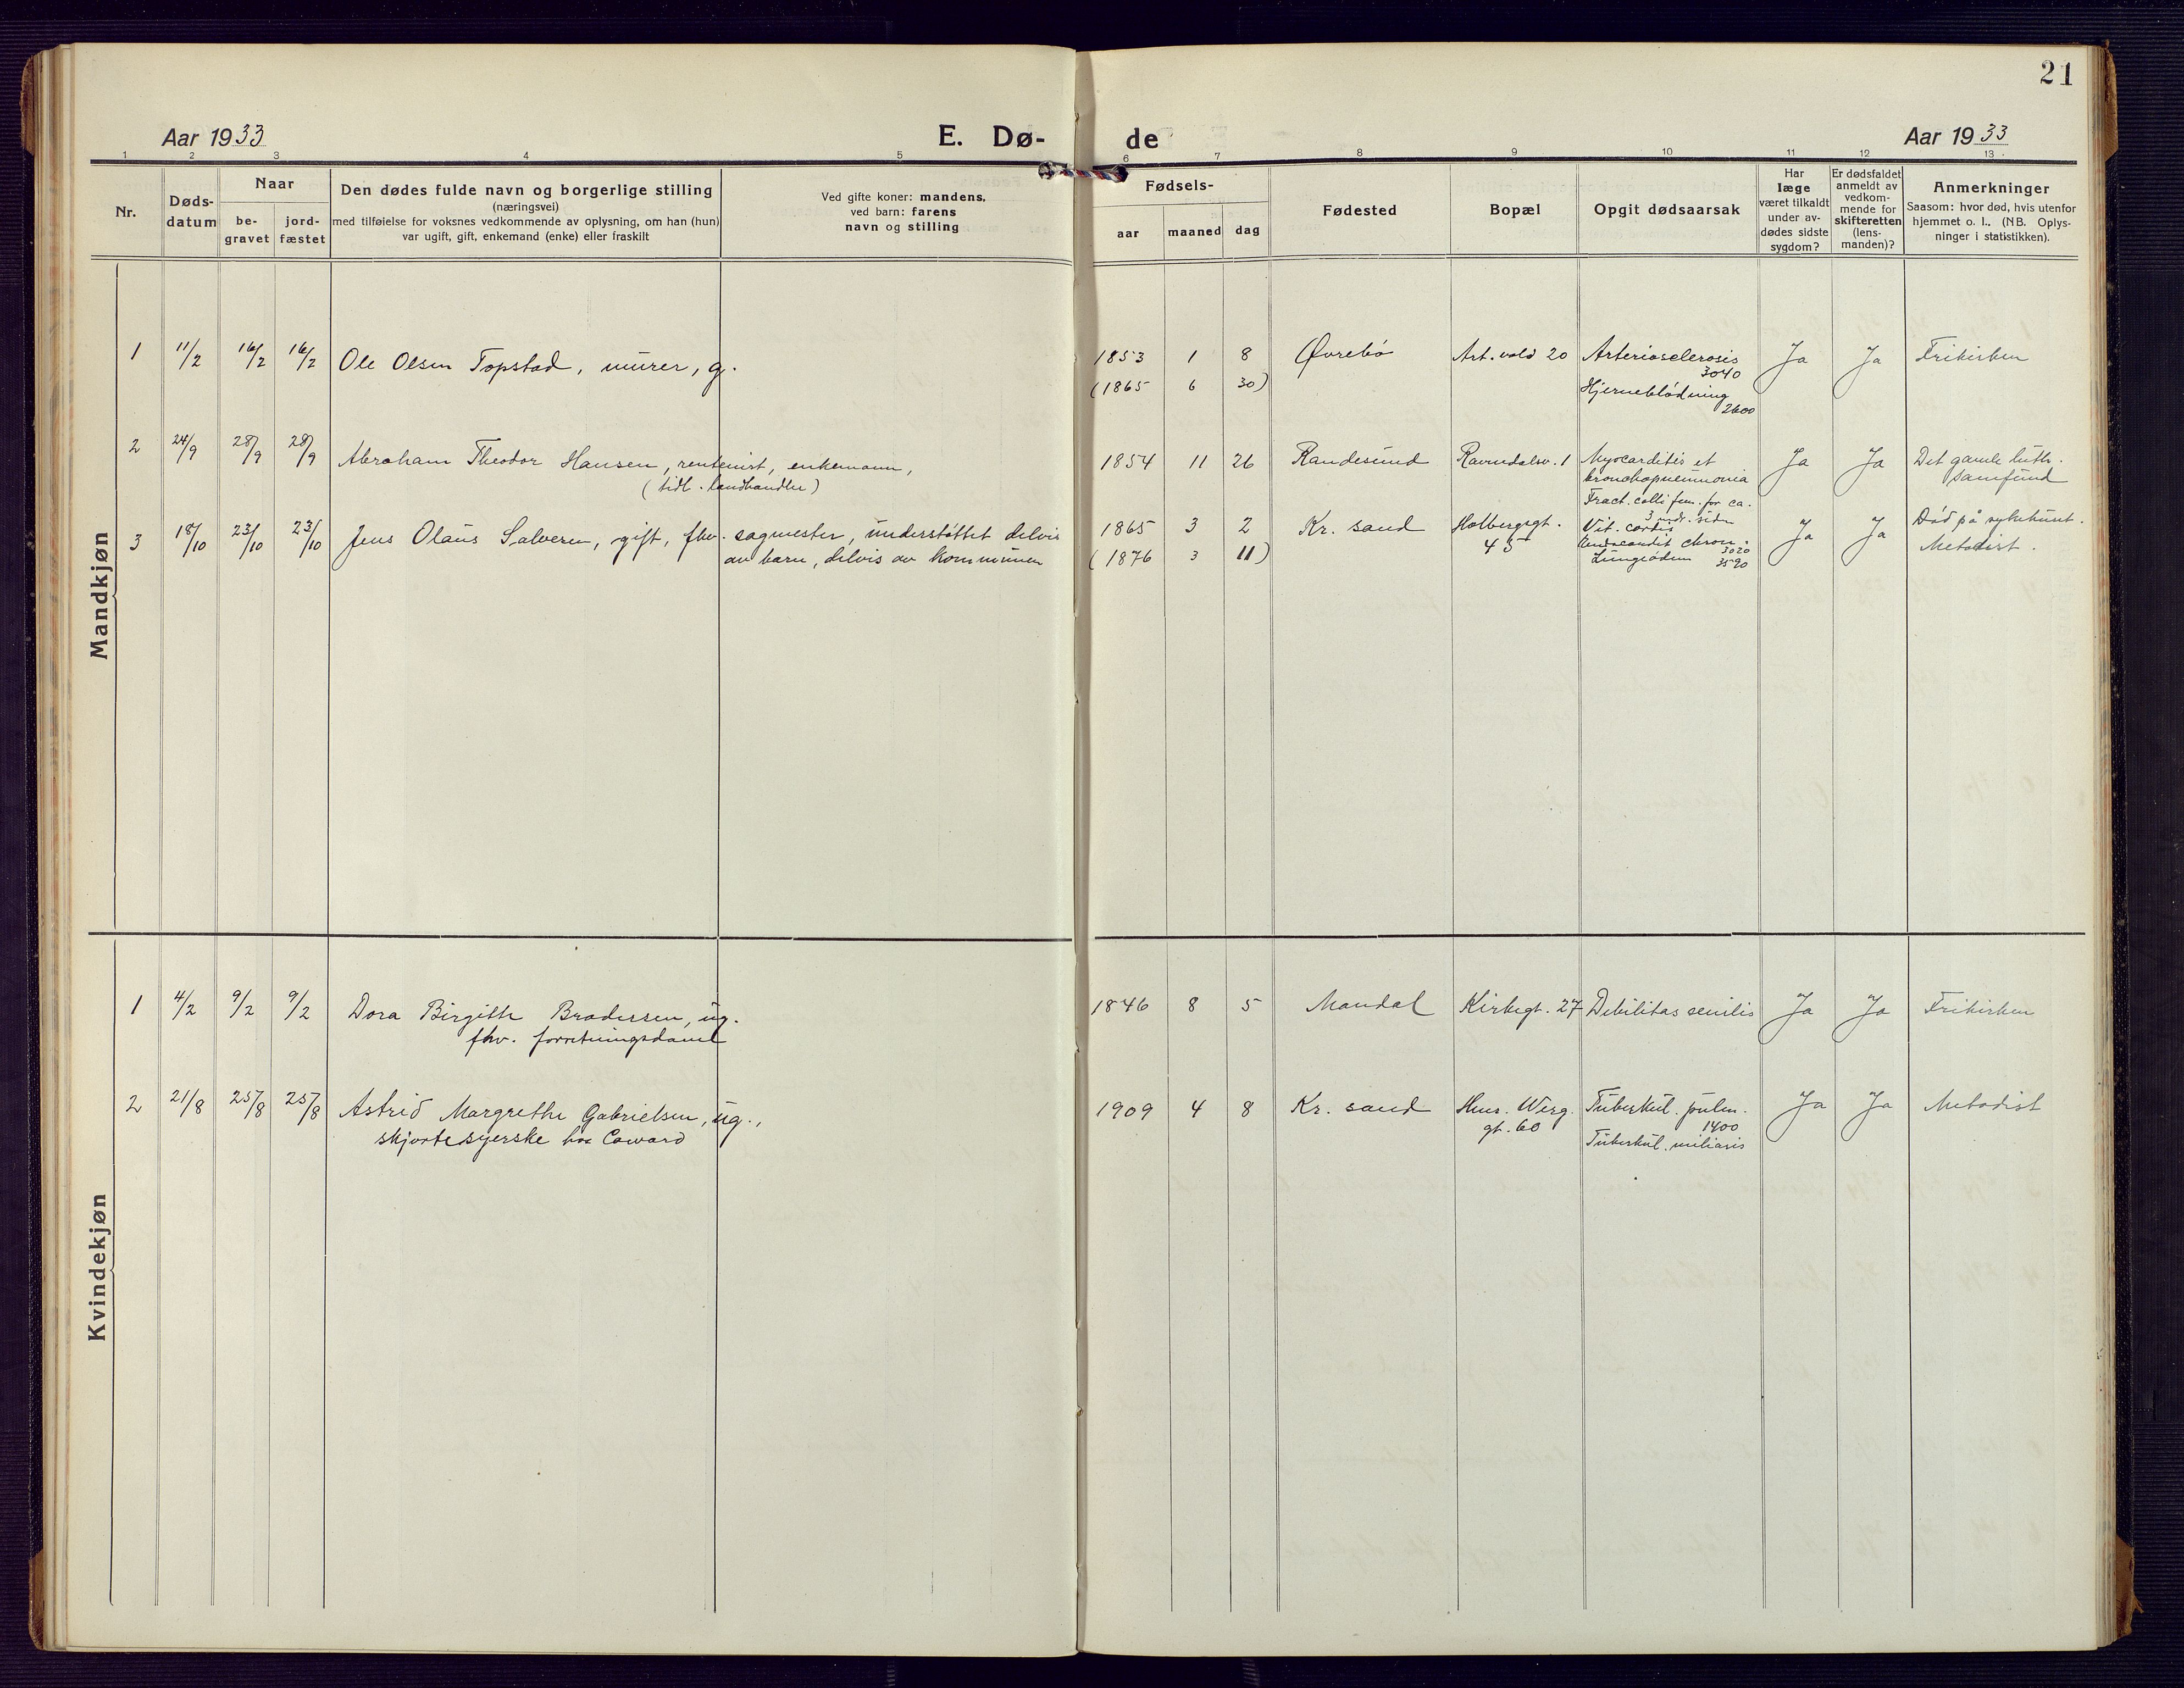 21
Aar 1933
E. Dø-
de
Aar 1933
1 2 3 4 5 6 7 8 9 10 11 12 13
Nr.
Døds-
datum
Naar
be-
gravet
jord-
fæstet
Den dødes fulde navn og borgerlige stilling
(næringsvei)
med tilføielse for voksnes vedkommende av oplysning, om han (hun)
var ugift, gift, enkemand (enke) eller fraskilt
Ved gifte koner: mandens,
ved barn: farens
navn og stilling
Fødsels-
aar maaned dag
Fødested
Bopæl
Opgit dødsaarsak
Har
læge
været tilkaldt
under av-
dødes sidste
sygdom?
Er dødsfaldet
anmeldt av
vedkom-
mende for
skifteretten
(lens-
manden)?
Anmerkninger
Saasom: hvor død, hvis utenfor
hjemmet o. l.. (NB. Oplys-
ninger i statistikken).
Mandkjøn
1 11/2 16/2 16/2 Ole Olsen Topstad, murer, g.
1853 1 8
(1865 6 30)
Øvrebö
Art. vold 20
Arteriosclerosis
3040
Hjerneblödning
2600
Ja Ja Frikirken
2 24/9 28/9 28/9 Abraham Theodor Hansen, rentenist, enkemann,
(tidl. landhandler)
1854 11 26
Randesund
Ravndalsv. 1
Myocarditis et
bronchopneumonia
Fract. colli fem. for ca.
3 mdr. siden
Ja Ja
Det gamle luth.
samfund
3 18/10 23/10 23/10 Jens Olaus Salvesen, gift, fhv. sagmester, understöttet delvis
av barn, delvis av kommunen
1865 3 2
(1876 3 11)
Kr. sand
Holbergsgt.
45
Vit. cordis
Endocardit chron.
3020
Lungeödem 3520
Ja Ja
Död på sykehuset.
Metodist.
Kvindekjøn
1 4/2 9/2 9/2 Dora Birgith Brodersen, ug.
fhv. forretningsdame
1846 8 5 Mandal Kirkegt. 27 Debilitas senilis Ja Ja Frikirken
2 21/8 25/8 25/8 Astrid Margrethe Gabrielsen, ug.,
skjortesyerske hos Coward
1909 4 8 Kr. sand
Henr. Werg.
gt. 60
Tuberkul. pulm.
1400
Tuberkul. miliaris
Ja Ja Metodist